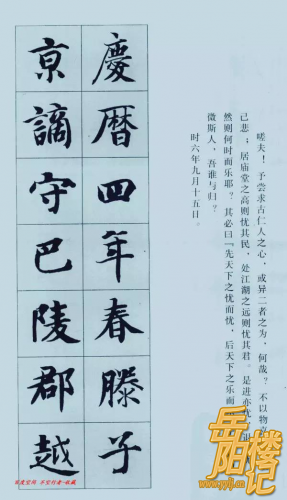 嗟夫！予尝求古仁人之心，或异二者之为，何哉？不以物
己悲；居庙堂之高则忧其民，处江湖之远则忧其君。是进亦忧
然则何时而乐耶？其必曰『先天下之忧而忧，后天下之乐而
微斯人，吾谁与归？
时六年九月十五日。
慶曆四年春滕子
京謫守巴陵郡越
岳阳楼记